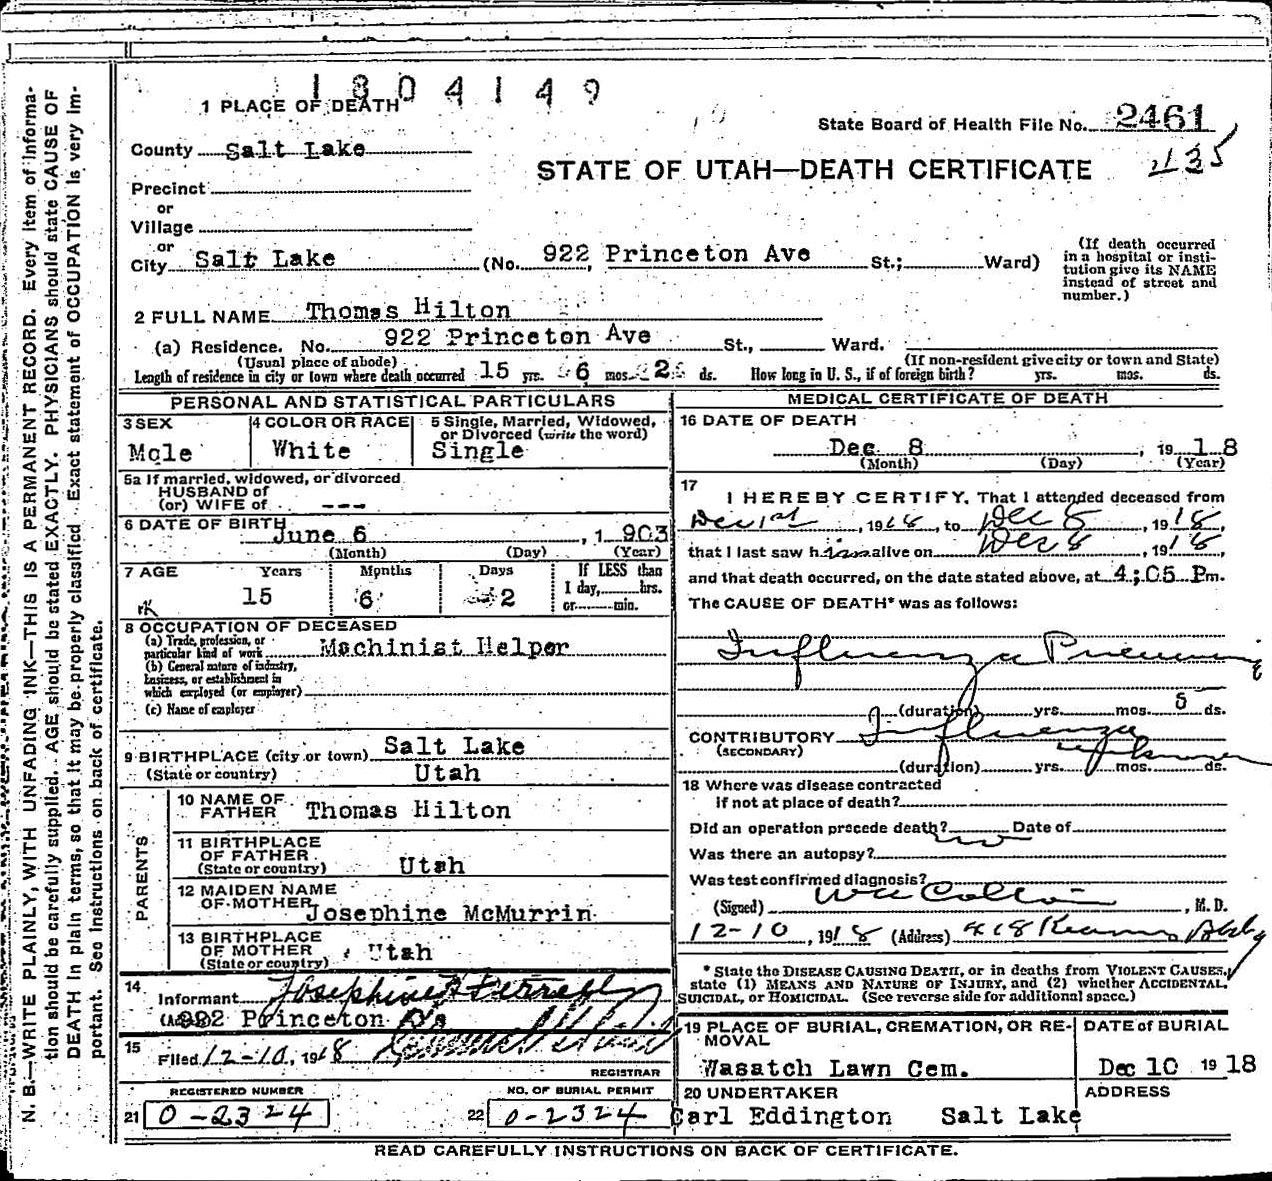 1804149
1 PLACE OF DEATH
State Board of Health File No. 2461
County Salt Lake
STATE OF UTAH—DEATH CERTIFICATE
435
Precinct
or
Village
or
City Salt Lake (No. 922, Princeton Ave St.; Ward)
(If death occurred in a hospital or institution give its NAME instead of street and number.)
2 FULL NAME Thomas Hilton
(a) Residence. No. 922 Princeton Ave St., Ward.
(Usual place of abode) (If non-resident give city or town and State)
Length of residence in city or town where death occurred 15 yrs. 6 mos. 2 ds. How long in U. S., if of foreign birth? yrs. mos. ds.
PERSONAL AND STATISTICAL PARTICULARS
3 SEX
Male
4 COLOR OR RACE
White
5 Single, Married, Widowed, or Divorced (write the word)
Single
5a If married, widowed, or divorced
HUSBAND of
(or) WIFE of ---
6 DATE OF BIRTH
June 6, 1903
(Month) (Day) (Year)
7 AGE Years Months Days If LESS than
1 day, hrs.
or min.
15 6 2
8 OCCUPATION OF DECEASED
(a) Trade, profession, or
particular kind of work Machinist Helper
(b) General nature of industry,
business, or establishment in
which employed (or employer)
(c) Name of employer
9 BIRTHPLACE (city or town) Salt Lake
(State or country) Utah
PARENTS
10 NAME OF
FATHER Thomas Hilton
11 BIRTHPLACE
OF FATHER
(State or country) Utah
12 MAIDEN NAME
OF MOTHER
Josephine McMurrin
13 BIRTHPLACE
OF MOTHER
(State or country) Utah
14
Informant Josephine
922 Princeton
15
Filed 12-10, 1918
REGISTRAR
REGISTERED NUMBER
21 0-2324
NO. OF BURIAL PERMIT
22 0-2324
MEDICAL CERTIFICATE OF DEATH
16 DATE OF DEATH
Dec 8, 1918
(Month) (Day) (Year)
17
I HEREBY CERTIFY, That I attended deceased from
Dec 1st, 1918, to Dec 8, 1918,
that I last saw him alive on Dec 8, 1918,
and that death occurred, on the date stated above, at 4;05 Pm.
The CAUSE OF DEATH* was as follows:
Influenza Pneumonia
(duration) yrs. mos. 5 ds.
CONTRIBUTORY Influenza
(SECONDARY)
(duration) yrs. mos. ds.
18 Where was disease contracted
if not at place of death?
Did an operation precede death? no Date of
Was there an autopsy?
Was test confirmed diagnosis?
(Signed) , M. D.
12-10, 1918 (Address) 418 Kearns Bldg
* State the DISEASE CAUSING DEATH, or in deaths from VIOLENT CAUSES,
state (1) MEANS AND NATURE OF INJURY, and (2) whether ACCIDENTAL,
SUICIDAL, or HOMICIDAL. (See reverse side for additional space.)
19 PLACE OF BURIAL, CREMATION, OR REMOVAL
Wasatch Lawn Cem.
DATE of BURIAL
Dec 10 1918
20 UNDERTAKER
Carl Eddington
ADDRESS
Salt Lake
READ CAREFULLY INSTRUCTIONS ON BACK OF CERTIFICATE.
N. B.—WRITE PLAINLY, WITH UNFADING INK—THIS IS A PERMANENT RECORD. Every item of information should be carefully supplied. AGE should be stated EXACTLY. PHYSICIANS should state CAUSE OF DEATH in plain terms, so that it may be properly classified. Exact statement of OCCUPATION is very important. See instructions on back of certificate.